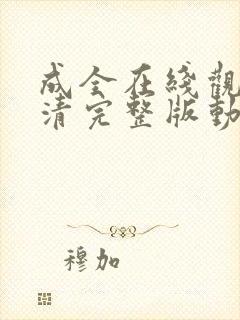 成全在綫觀
清完整版動
穆加